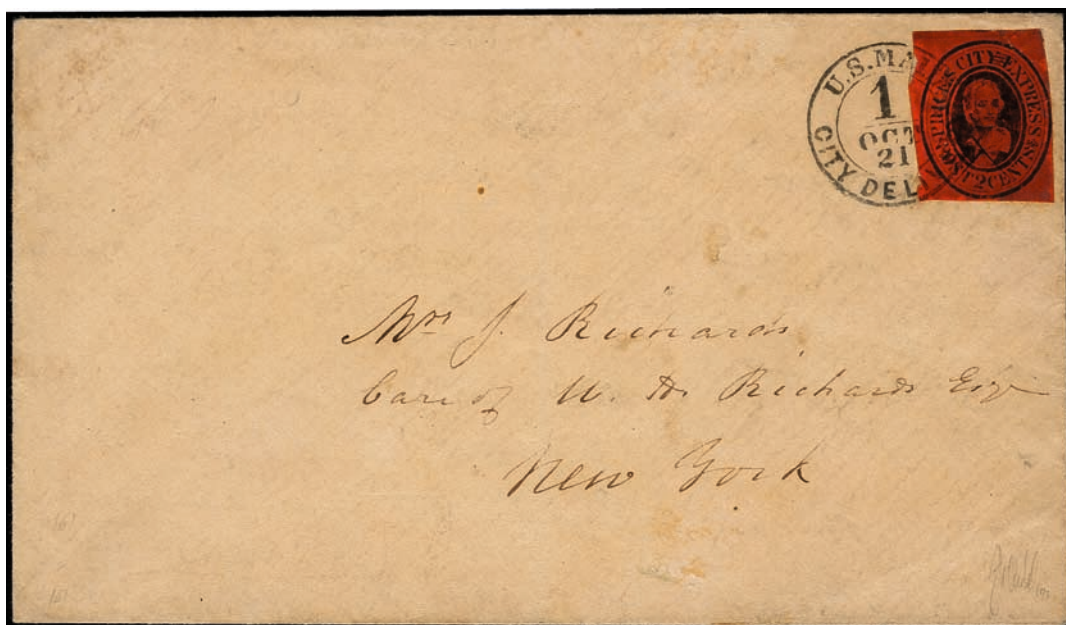 U.S.MA
1
OCT
21
CITY DEL
PRICE'S CITY EXPRESS
POST 2 CENTS
Mrs J. Richards
Care of W. H. Richards Esqr
New York